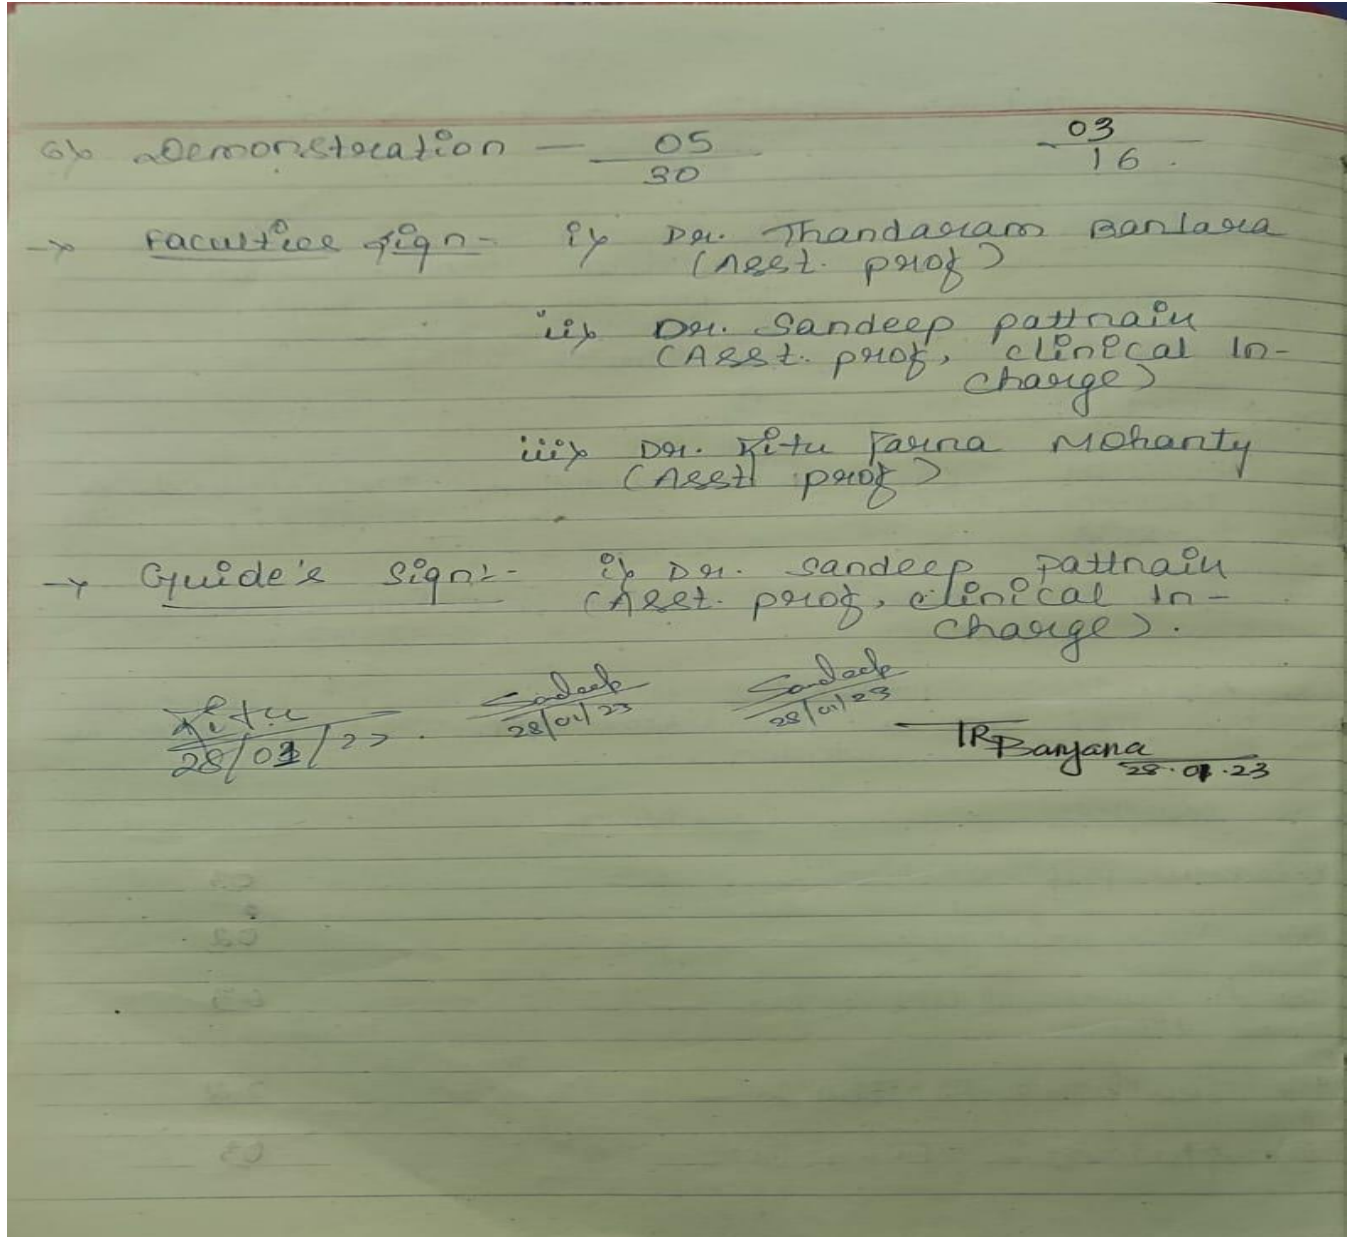 6) Demonstration — 05 03
30 16.
→ Facultiee sign- i) Dr. Thandaram Banlara
(Asst. prof)
ii) Dr. Sandeep pattnaik
(Asst. prof, clinical In-
charge)
iii) Dr. Ritu Parna Mohanty
(Asst prof)
→ Guide's Sign:- i) Dr. Sandeep Pattnaik
(Asst. prof, clinical In-
charge).
Ritu Sandeep Sandeep
28/01/23. 28/01/23 28/01/23
TR
28.01.23